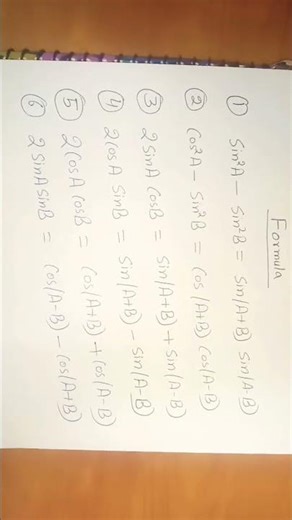 Formula
① Sin²A - Sin²B = Sin(A+B) Sin(A-B)
② Cos²A - Sin²B = Cos(A+B) Cos(A-B)
③ 2 SinA CosB = Sin(A+B) + Sin(A-B)
④ 2 CosA SinB = Sin(A+B) - Sin(A-B)
⑤ 2 CosA CosB = Cos(A+B) + Cos(A-B)
⑥ 2 SinA SinB = Cos(A-B) - Cos(A+B)